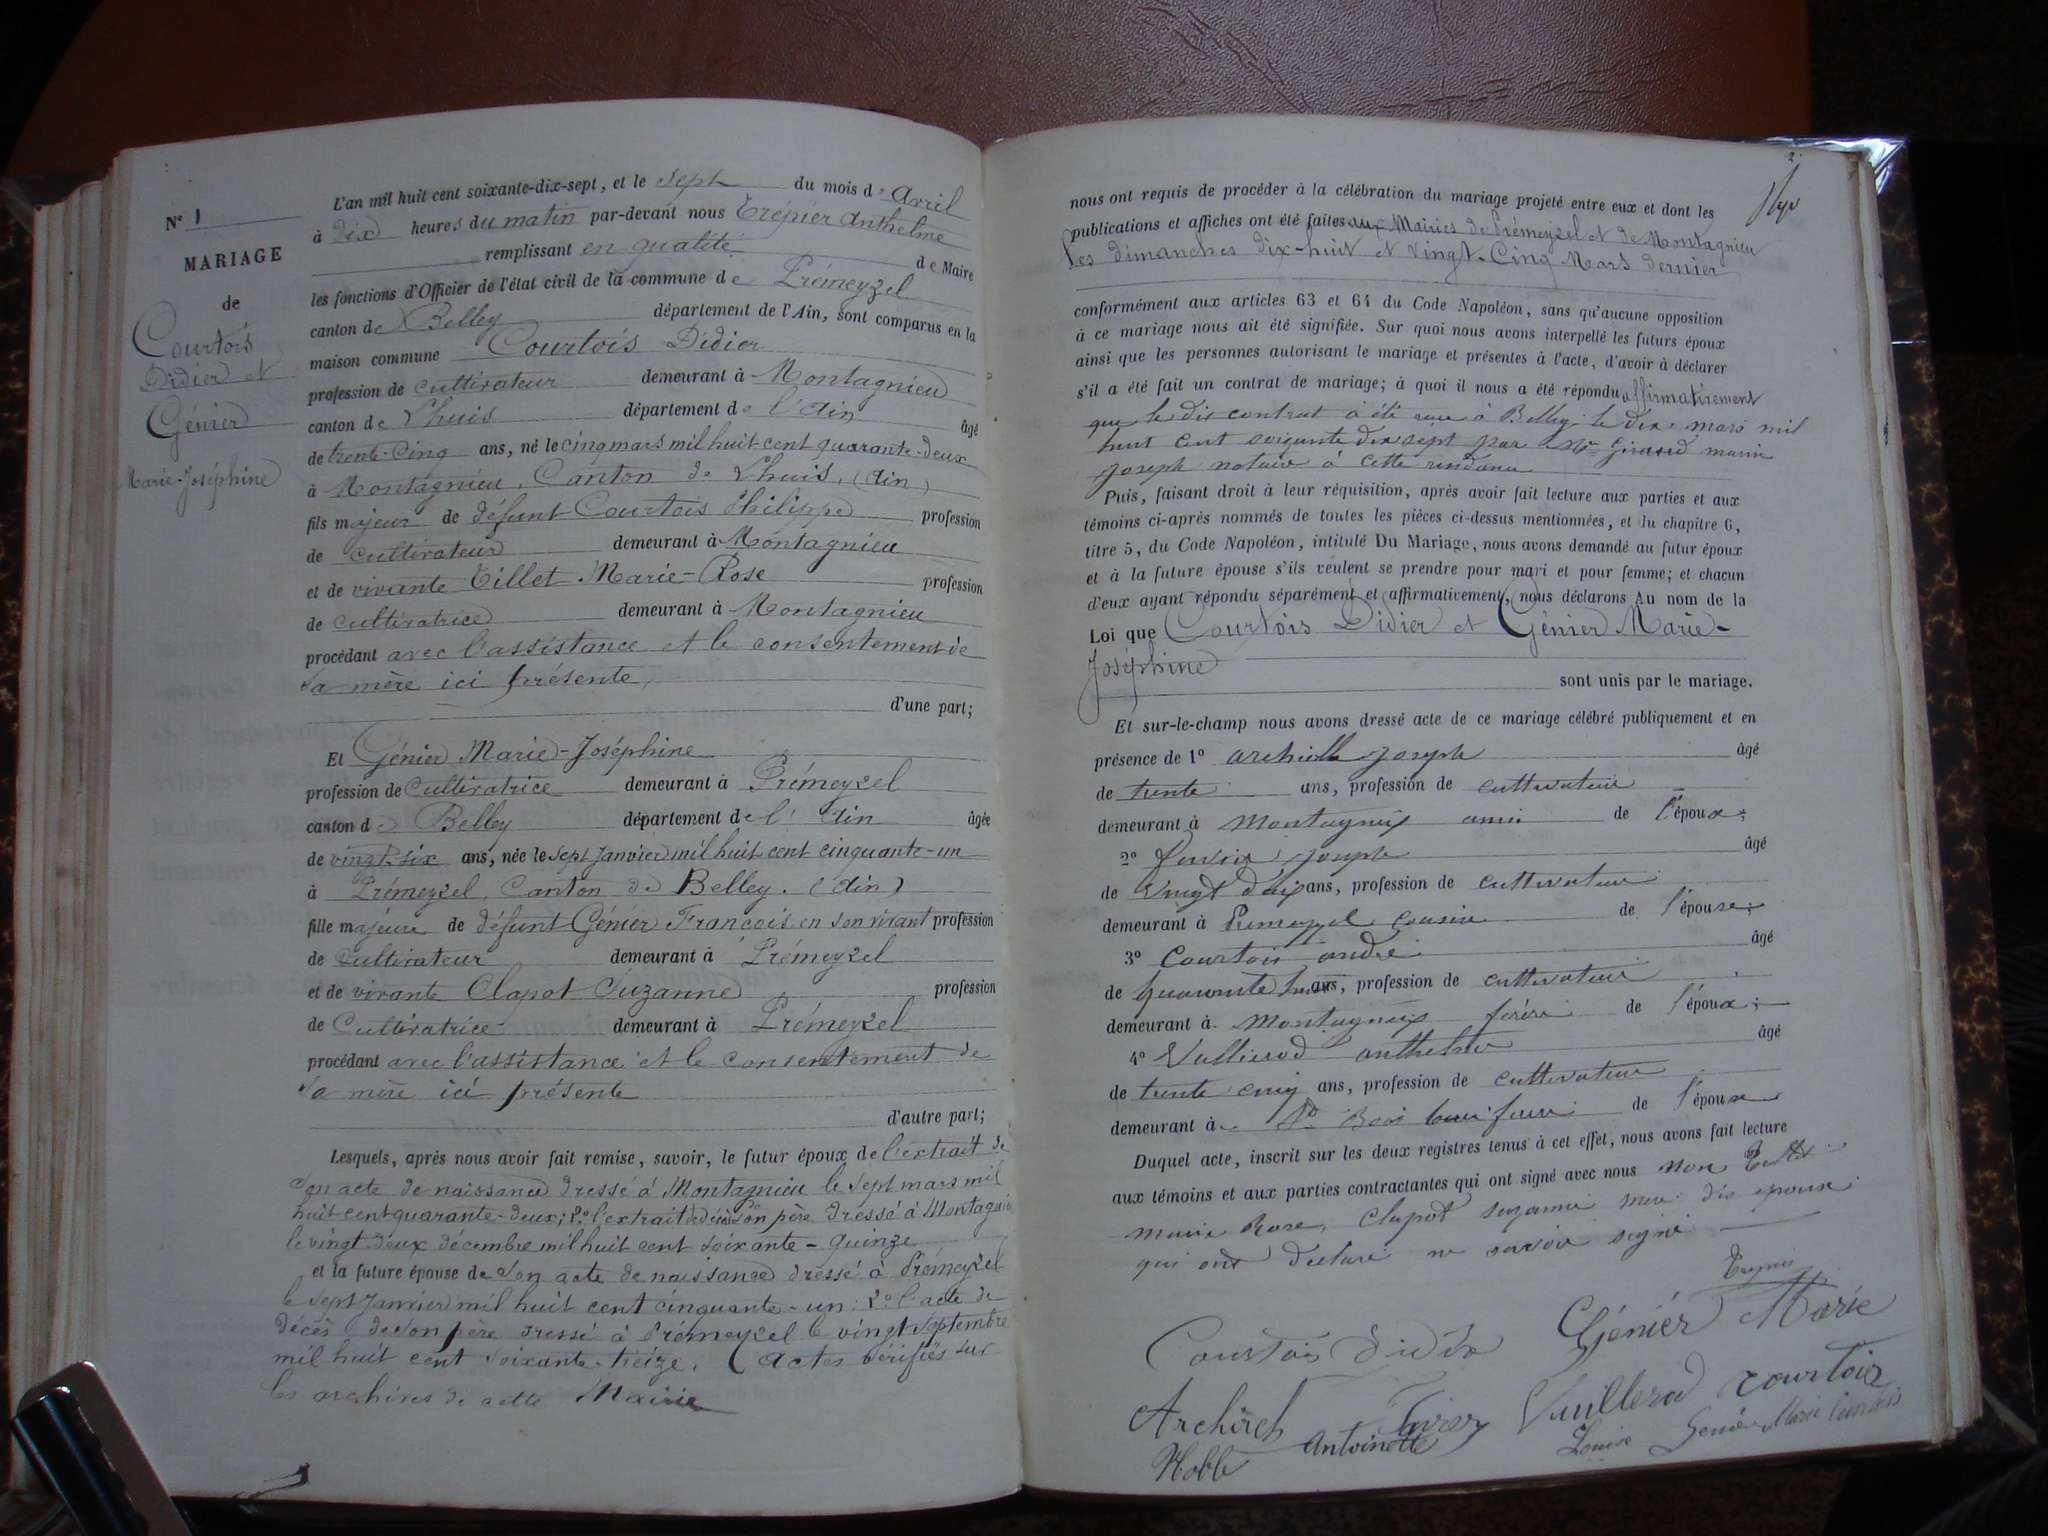 N° 1
MARIAGE
de
Courtois
Didier et
Génier
Marie-Joséphine
L'an mil huit cent soixante-dix-sept, et le sept du mois de Avril
à dix heures du matin par-devant nous Trépier Anthelme
remplissant en qualité de Maire
les fonctions d'Officier de l'état civil de la commune de Prémeyzel
canton de Belley département de l'Ain, sont comparus en la
maison commune Courtois Didier
profession de cultivateur demeurant à Montagnieu
canton de Lhuis département de l'Ain âgé
de trente-cinq ans, né le cinq mars mil huit cent quarante-deux
à Montagnieu, Canton de Lhuis, (Ain)
fils majeur de défunt Courtois Philippe profession
de cultivateur demeurant à Montagnieu
et de vivante Tillet Marie-Rose profession
de cultivatrice demeurant à Montagnieu
procédant avec l'assistance et le consentement de
sa mère ici présente,
d'une part;
Et Génier Marie-Joséphine
profession de Cultivatrice demeurant à Prémeyzel
canton de Belley département de l'Ain âgée
de vingt-six ans, née le sept Janvier mil huit cent cinquante-un
à Prémeyzel, Canton de Belley. (Ain)
fille majeure de défunt Génier François en son vivant profession
de Cultivateur demeurant à Prémeyzel
et de vivante Clapot Suzanne profession
de Cultivatrice demeurant à Prémeyzel
procédant avec l'assistance et le consentement de
sa mère ici présente
d'autre part;
Lesquels, après nous avoir fait remise, savoir, le futur époux de l'extrait de
son acte de naissance dressé à Montagnieu le sept mars mil
huit cent quarante-deux; 2° l'extrait de décès de son père dressé à Montagnieu
le vingt deux décembre mil huit cent soixante-quinze
et la future épouse de son acte de naissance dressé à Prémeyzel
le sept Janvier mil huit cent cinquante-un: 2° l'acte de
décès de son père dressé à Prémeyzel le vingt septembre
mil huit cent soixante-treize. (actes vérifiés sur
les archives de cette Mairie
2
nous ont requis de procéder à la célébration du mariage projeté entre eux et dont les
publications et affiches ont été faites aux Mairies de Prémeyzel et de Montagnieu
les dimanches dix-huit et vingt-cinq Mars dernier
conformément aux articles 63 et 64 du Code Napoléon, sans qu'aucune opposition
à ce mariage nous ait été signifiée. Sur quoi nous avons interpellé les futurs époux
ainsi que les personnes autorisant le mariage et présentes à l'acte, d'avoir à déclarer
s'il a été fait un contrat de mariage; à quoi il nous a été répondu affirmativement
que le dit contrat à été à Belley le dix mars mil
huit cent soixante dix sept par Me Girard marin
Joseph notaire à cette
Puis, faisant droit à leur réquisition, après avoir fait lecture aux parties et aux
témoins ci-après nommés de toutes les pièces ci-dessus mentionnées, et du chapitre 6,
titre 5, du Code Napoléon, intitulé Du Mariage, nous avons demandé au futur époux
et à la future épouse s'ils veulent se prendre pour mari et pour femme; et chacun
d'eux ayant répondu séparément et affirmativement, nous déclarons Au nom de la
Loi que Courtois Didier et Génier Marie-
Joséphine
sont unis par le mariage.
Et sur-le-champ nous avons dressé acte de ce mariage célébré publiquement et en
présence de 1° Joseph âgé
de trente ans, profession de cultivateur
demeurant à ami de l'époux;
2° Joseph âgé
de vingt ans, profession de cultivateur
demeurant à cousin de l'épouse;
3° Courtois andré âgé
de quarante ans, profession de cultivateur
demeurant à frère de l'époux;
4° anthelme âgé
de trente cinq ans, profession de cultivateur
demeurant à St Bois de l'épouse
Duquel acte, inscrit sur les deux registres tenus à cet effet, nous avons fait lecture
aux témoins et aux parties contractantes qui ont signé avec nous non Tillet
marie Rose, Clapot suzanne mère des époux
qui ont déclaré ne savoir signé
Génier Marie
Courtois
Vuillerod Courtois
Antoinette
Louise Marie Courtois